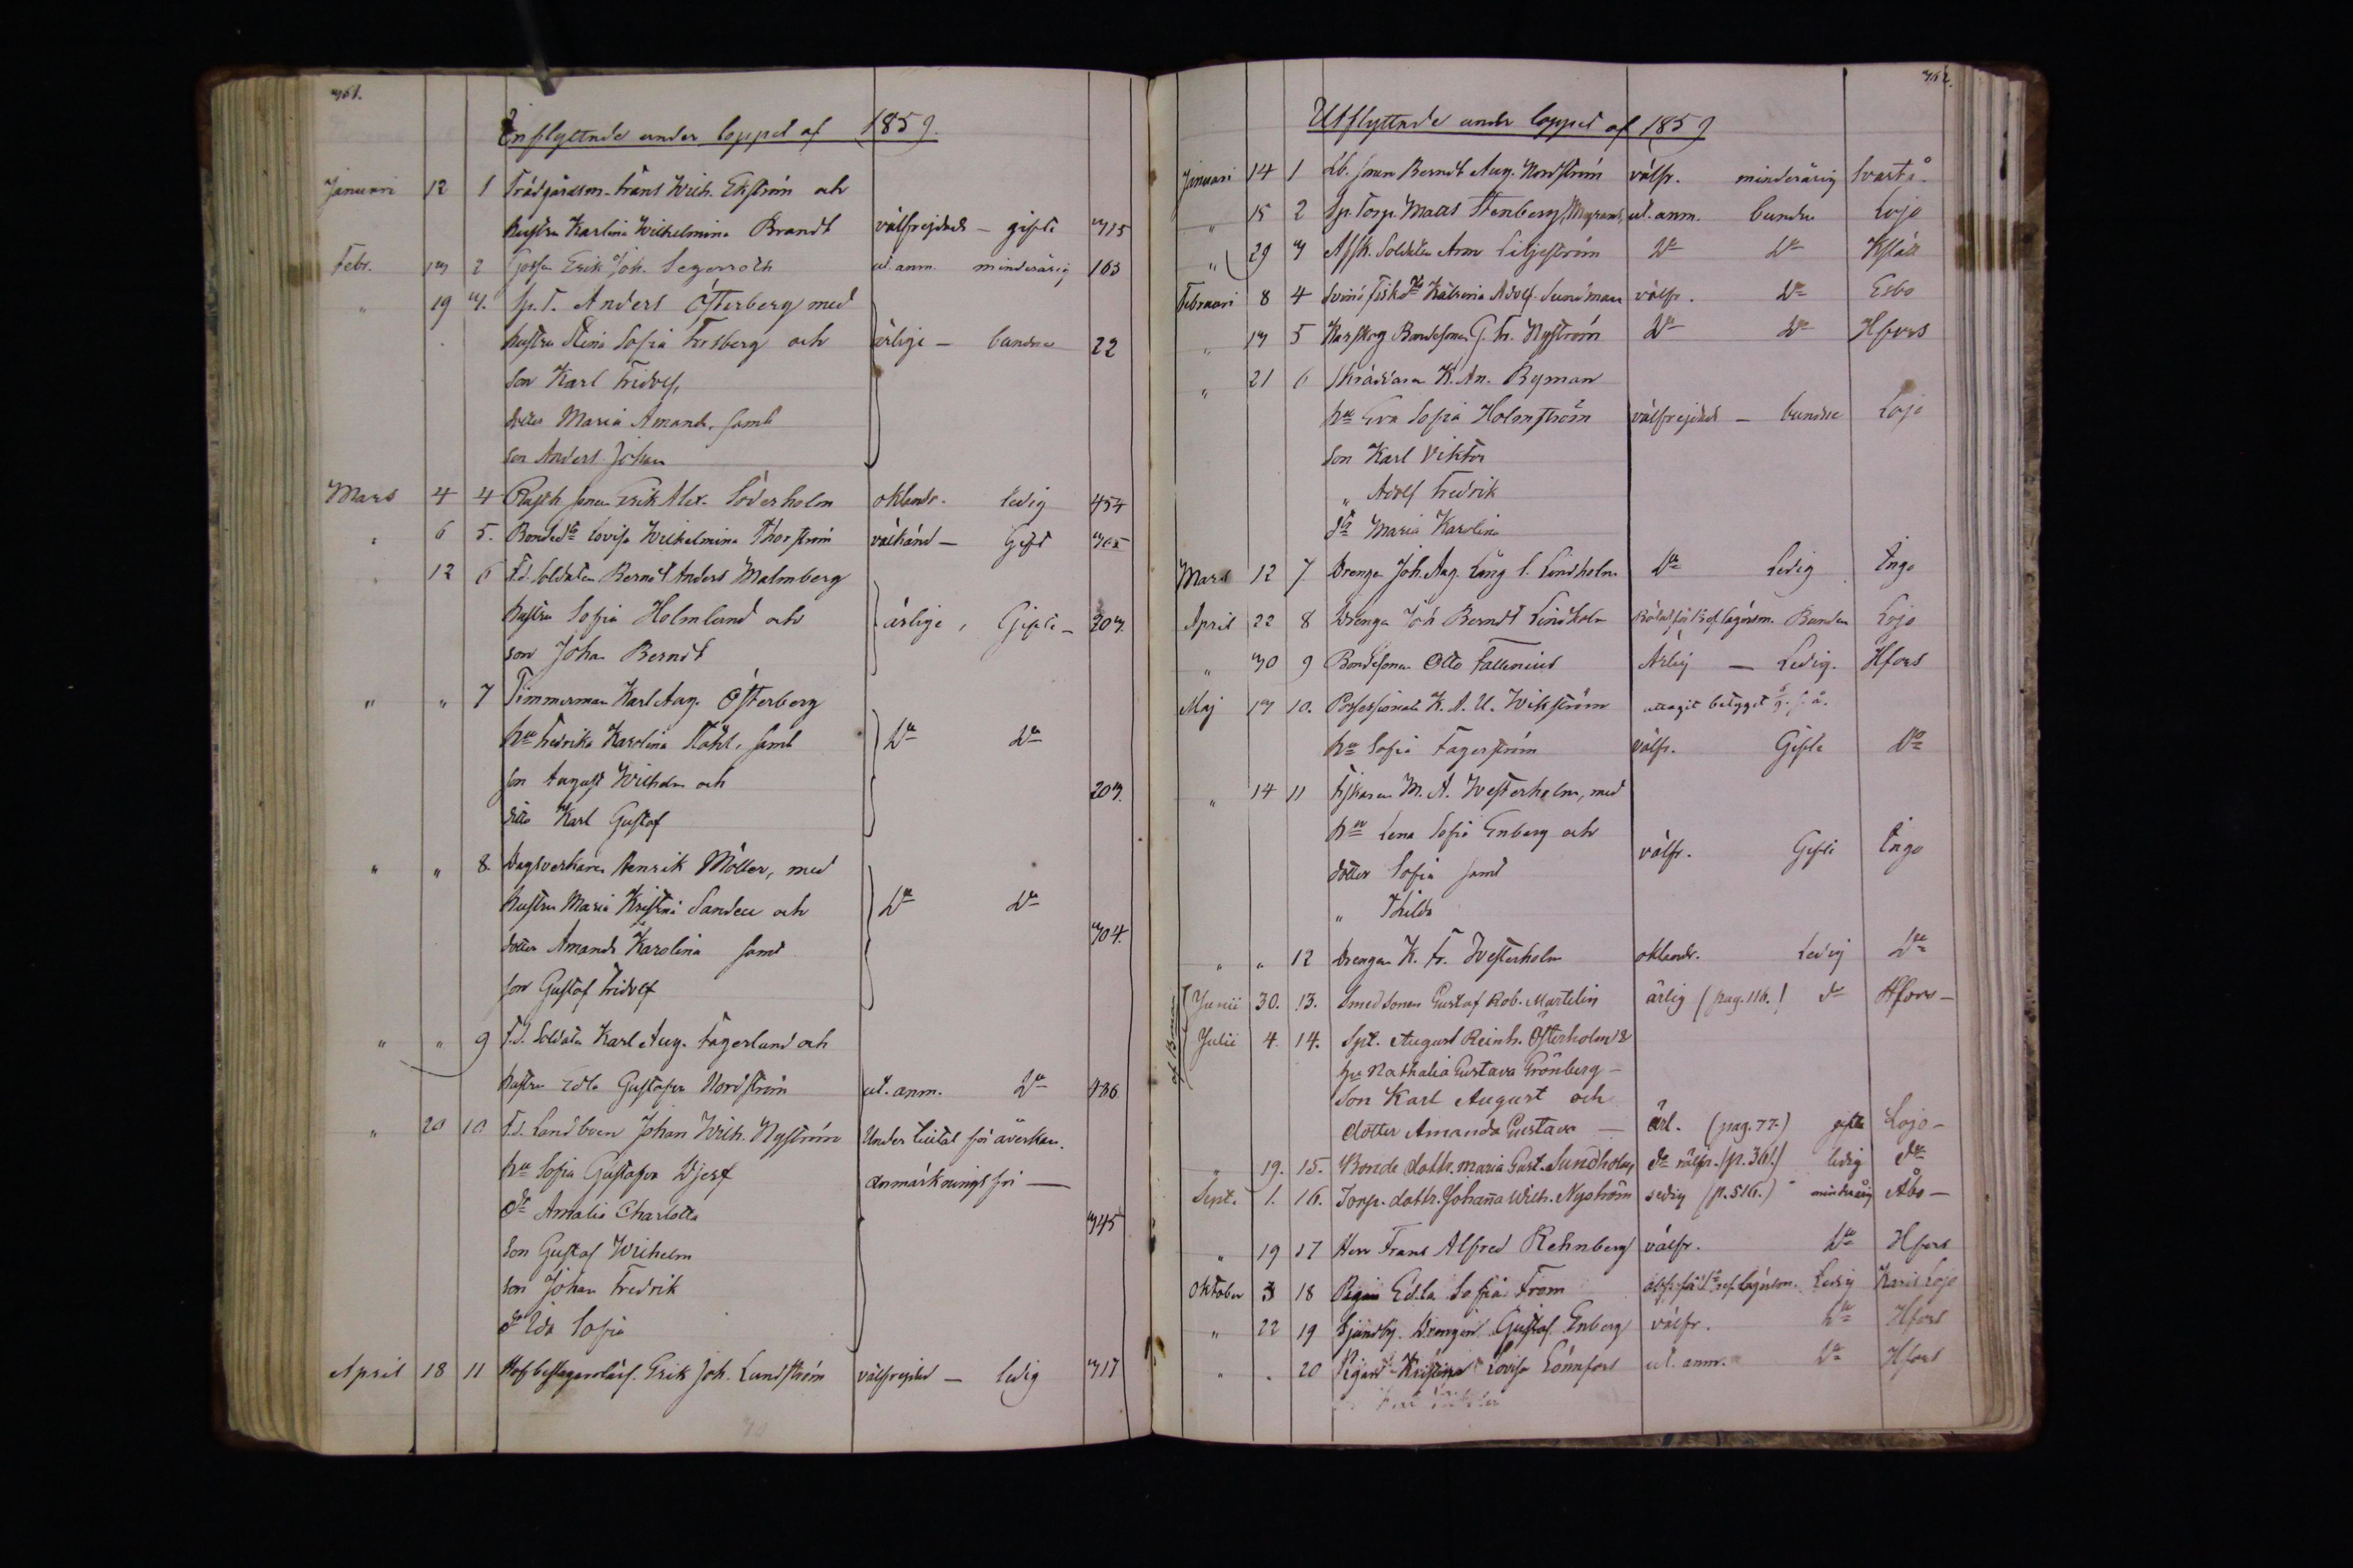 361.
Inflyttade under loppet af 1859.
Januari 12 1 Trädgårdsm. Frans Wilh. Ekström och
hustru Karolina Wilhelmina Brandt välfrejdade - gifte 315
Febr. 13 2 Gossen Erik Joh. Segerroth ut. anm. minderårig 163
" 19 3. Sp. T. Anders Österberg med
hustru Stina Sofia Forsberg och ärlige - bundne 22
Son Karl Fridolf,
dotter Maria Amanda, samt
son Anders Johan
Mars 4 4 Erik Alex. Söderholm oklandr. ledig 454
" 6 5. Bonded:r Lovisa Wilhelmina Thorström välkänd - Gift 365
" 12 6 F.d. Soldaten Berndt Anders Malmberg
hustru Sofia Holmlund och ärlige, Gifte - 203.
son Johan Berndt
" " 7 Timmerman Karl Aug. Österberg
h:u Fredrika Karolina Ståhl, samt D:o D:o
son August Wilhelm och 203.
ditto Karl Gustaf
" " 8. Dagsverkaren Henrik Möller, med
hustru Maria Kristina Sandell och D:o D:o
dotter Amanda Karolina samt 304.
son Gustaf Fridolf
" " 9 F.d. Soldaten Karl Aug. Fagerlund och
hustru Edla Gustafva Nordström ut. anm. D:o 436
" 20 10 F.d. Landbon Johan Wilh. Nyström Under tilltal för åverkan.
h:u Sofia Gustafva Djerf anmärkningsfri —
d:r Amalia Charlotta 345
Son Gustaf Wilhelm
son Johan Fredrik
d:r Ida Sofia
April 18 11 Hofbeslagareläri. Erik Joh. Lundström välfrejdad - ledig 317
362.
Utflyttade under loppet af 1859
Januari 14 1 Lb. sonen Berndt Aug. Nordström välfr. minderårig Svartå.
" 15 2 Sp. Torp. Matts Stenberg, ut. anm. bunden Lojo
" 29 3 Afsk. Soldaten Aron Liljeström D:o D:o Kyslätt
Februari 8 4 Svinö Fisk d:r Katrina Adolf. Sundman välfr. D:o Esbo
" 13 5 Harskog Bondesonen G. Fr. Nyström D:o D:o Hfors
" 21 6 Skräddaren K. An. Ryman
h:u Eva Sofia Holmström välfrejdade - bundne Lojo
Son Karl Viktor
" Adolf Fredrik
d:r Maria Karolina
Mars 12 7 Drengen Joh. Aug. Lång l. Lindholm D:o Ledig Ingo
April 22 8 Drengen Joh Berndt Lindholm Bunden Lojo
" 30 9 Bondesonen Otto Fallenius Ärlig — Ledig. Hfors
Maj 13 10. Possessionat. K. A. U. Wikström uttagit betyget
h:u Sofia Fagerström välfr. Gifte D:o
" 14 11 Fiskaren M. A. Westerholm, med
h:u Lena Sofia Enberg och välfr. Gifte Ingo
dotter Sofia samt
" Thilda
" " 12 Drengen K. Fr. Westerholm oklandr. Ledig D:o
Junii 30. 13. Smedsonen Gustaf Rob. Martelin ärlig (pag. 116.) d:o Hfors -
Julii 4. 14. Spt. August Reinh. Österholm &
hu Nathalia Gustava Grönberg -
Son Karl August och
dotter Amanda Gustava — ärl. (pag. 77.) gifte Lojo -
" 19. 15. Bonde dottr. Maria Gust. Sundholm d:o välfr. (p. 361.) ledig d:o
Sept. 1. 16. Torp. dottr. Johanna Wilh. Nyström sedig (p. 516.) minderårig Åbo -
" 19 17 Herr Frans Alfred Rehnberg välfr. D:o Hfors
Oktober 3 18 Pigan Edla Sofia From Ledig Karis Lojo
" 22 19 Sjundby. Drengen Gustaf Enberg välfr. D:o Hfors
" . 20 Pigan Kristina Lovisa Lönnfors ut. anm. D:o Hfors